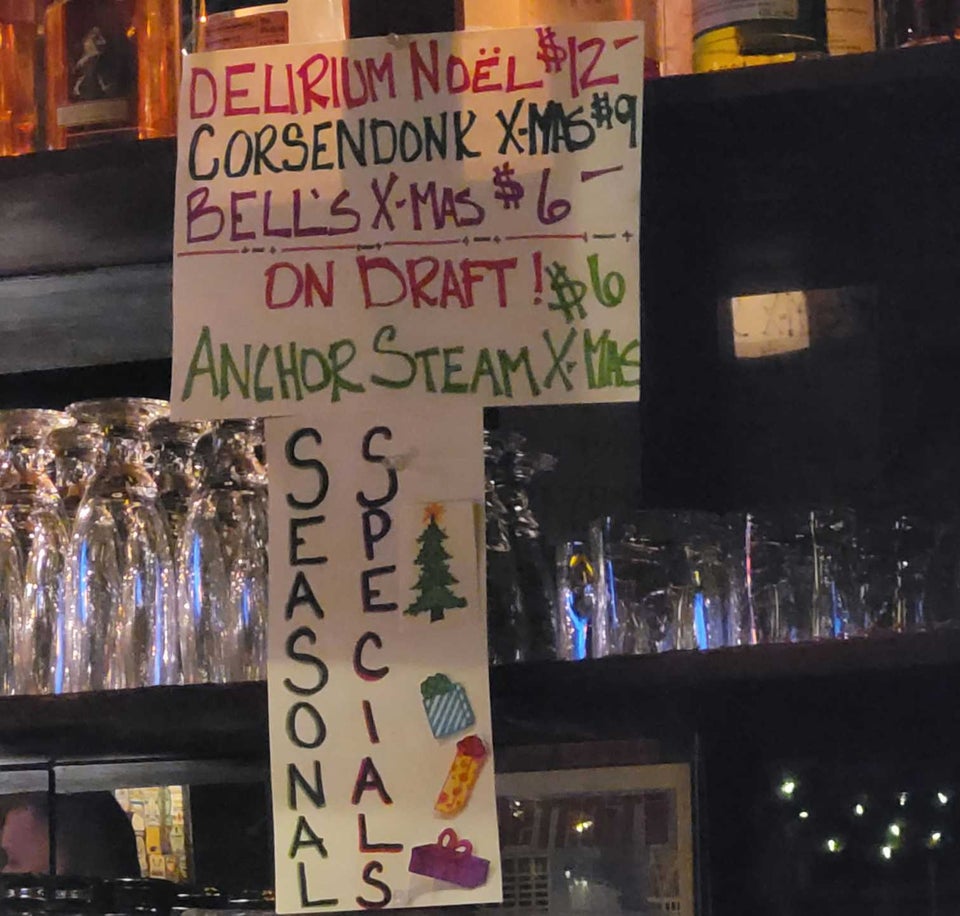 DELIRIUM NOËL $12-
CORSENDONK X-MAS $9
BELL'S X-MAS $6-
ON DRAFT! $6
ANCHOR STEAM X-MAS
SEASONAL
SPECIALS